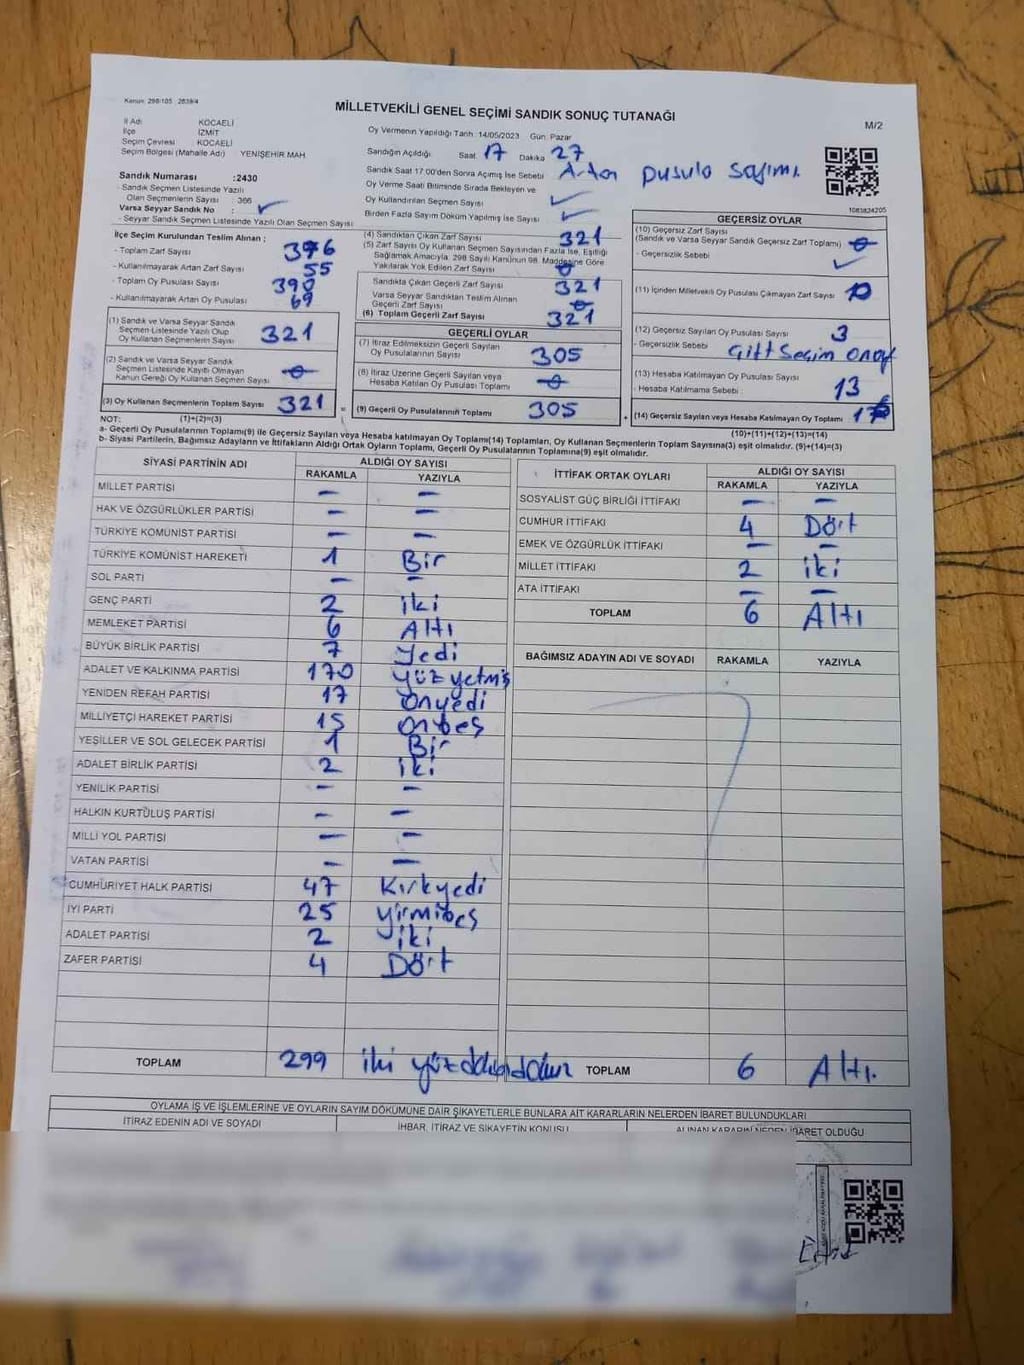 Kanun: 298/105 2839/4
MİLLETVEKİLİ GENEL SEÇİMİ SANDIK SONUÇ TUTANAĞI
M/2
İl Adı KOCAELİ
İlçe İZMİT
Seçim Çevresi KOCAELİ
Seçim Bölgesi (Mahalle Adı) YENİŞEHİR MAH
Sandık Numarası :2430
- Sandık Seçmen Listesinde Yazılı
Olan Seçmenlerin Sayısı : 366
Varsa Seyyar Sandık No :
- Seyyar Sandık Seçmen Listesinde Yazılı Olan Seçmen Sayısı
İlçe Seçim Kurulundan Teslim Alınan ;
- Toplam Zarf Sayısı 376
- Kullanılmayarak Artan Zarf Sayısı 55
- Toplam Oy Pusulası Sayısı 390
- Kullanılmayarak Artan Oy Pusulası 69
(1) Sandık ve Varsa Seyyar Sandık
Seçmen Listesinde Yazılı Olup
Oy Kullanan Seçmenlerin Sayısı 321
(2) Sandık ve Varsa Seyyar Sandık
Seçmen Listesinde Kayıtlı Olmayan
Kanun Gereği Oy Kullanan Seçmen Sayısı 0
(3) Oy Kullanan Seçmenlerin Toplam Sayısı 321
(1)+(2)=(3)
Oy Vermenin Yapıldığı Tarih: 14/05/2023 Gün: Pazar
Sandığın Açıldığı Saat 17 Dakika 27
Sandık Saat 17:00'den Sonra Açılmış İse Sebebi Artan pusula sayımı.
Oy Verme Saati Bitiminde Sırada Bekleyen ve
Oy Kullandırılan Seçmen Sayısı
Birden Fazla Sayım Döküm Yapılmış İse Sayısı
(4) Sandıktan Çıkan Zarf Sayısı 321
(5) Zarf Sayısı Oy Kullanan Seçmen Sayısından Fazla İse, Eşitliği
Sağlamak Amacıyla, 298 Sayılı Kanunun 98. Maddesine Göre
Yakılarak Yok Edilen Zarf Sayısı 0
Sandıkta Çıkan Geçerli Zarf Sayısı 321
Varsa Seyyar Sandıktan Teslim Alınan
Geçerli Zarf Sayısı 0
(6) Toplam Geçerli Zarf Sayısı 321
GEÇERLİ OYLAR
(7) İtiraz Edilmeksizin Geçerli Sayılan
Oy Pusulalarının Sayısı 305
(8) İtiraz Üzerine Geçerli Sayılan veya
Hesaba Katılan Oy Pusulası Toplamı 0
= (9) Geçerli Oy Pusulalarının Toplamı 305 +
1083824205
GEÇERSİZ OYLAR
(10) Geçersiz Zarf Sayısı
(Sandık ve Varsa Seyyar Sandık Geçersiz Zarf Toplamı) 0
- Geçersizlik Sebebi
(11) İçinden Milletvekili Oy Pusulası Çıkmayan Zarf Sayısı
(12) Geçersiz Sayılan Oy Pusulası Sayısı 3
- Geçersizlik Sebebi Çift Seçim Onay
(13) Hesaba Katılmayan Oy Pusulası Sayısı
- Hesaba Katılmama Sebebi 13
(14) Geçersiz Sayılan veya Hesaba Katılmayan Oy Toplamı
(10)+(11)+(12)+(13)=(14)
NOT:
a- Geçerli Oy Pusulalarının Toplamı(9) ile Geçersiz Sayılan veya Hesaba katılmayan Oy Toplamı(14) Toplamları, Oy Kullanan Seçmenlerin Toplam Sayısına(3) eşit olmalıdır. (9)+(14)=(3)
b- Siyasi Partilerin, Bağımsız Adayların ve İttifakların Aldığı Ortak Oyların Toplamı, Geçerli Oy Pusulalarının Toplamına(9) eşit olmalıdır.
SİYASİ PARTİNİN ADI ALDIĞI OY SAYISI
RAKAMLA YAZIYLA
MİLLET PARTİSİ — —
HAK VE ÖZGÜRLÜKLER PARTİSİ — —
TÜRKİYE KOMÜNİST PARTİSİ — —
TÜRKİYE KOMÜNİST HAREKETİ 1 Bir
SOL PARTİ — —
GENÇ PARTİ 2 iki
MEMLEKET PARTİSİ 6 Altı
BÜYÜK BİRLİK PARTİSİ 7 Yedi
ADALET VE KALKINMA PARTİSİ 170 yüzyetmiş
YENİDEN REFAH PARTİSİ 17 Onyedi
MİLLİYETÇİ HAREKET PARTİSİ 15 onbeş
YEŞİLLER VE SOL GELECEK PARTİSİ 1 Bir
ADALET BİRLİK PARTİSİ 2 iki
YENİLİK PARTİSİ — —
HALKIN KURTULUŞ PARTİSİ — —
MİLLİ YOL PARTİSİ — —
VATAN PARTİSİ — —
CUMHURİYET HALK PARTİSİ 47 Kırkyedi
İYİ PARTİ 25 yirmibeş
ADALET PARTİSİ 2 iki
ZAFER PARTİSİ 4 Dört
TOPLAM 299 iki yüz
İTTİFAK ORTAK OYLARI ALDIĞI OY SAYISI
RAKAMLA YAZIYLA
SOSYALİST GÜÇ BİRLİĞİ İTTİFAKI — —
CUMHUR İTTİFAKI 4 Dört
EMEK VE ÖZGÜRLÜK İTTİFAKI — —
MİLLET İTTİFAKI 2 iki
ATA İTTİFAKI — —
TOPLAM 6 Altı
BAĞIMSIZ ADAYIN ADI VE SOYADI RAKAMLA YAZIYLA
TOPLAM 6 Altı.
OYLAMA İŞ VE İŞLEMLERİNE VE OYLARIN SAYIM DÖKÜMÜNE DAİR ŞİKAYETLERLE BUNLARA AİT KARARLARIN NELERDEN İBARET BULUNDUKLARI
İTİRAZ EDENİN ADI VE SOYADI İHBAR, İTİRAZ VE ŞİKAYETİN KONUSU ALINAN KARARIN NEDEN İBARET OLDUĞU